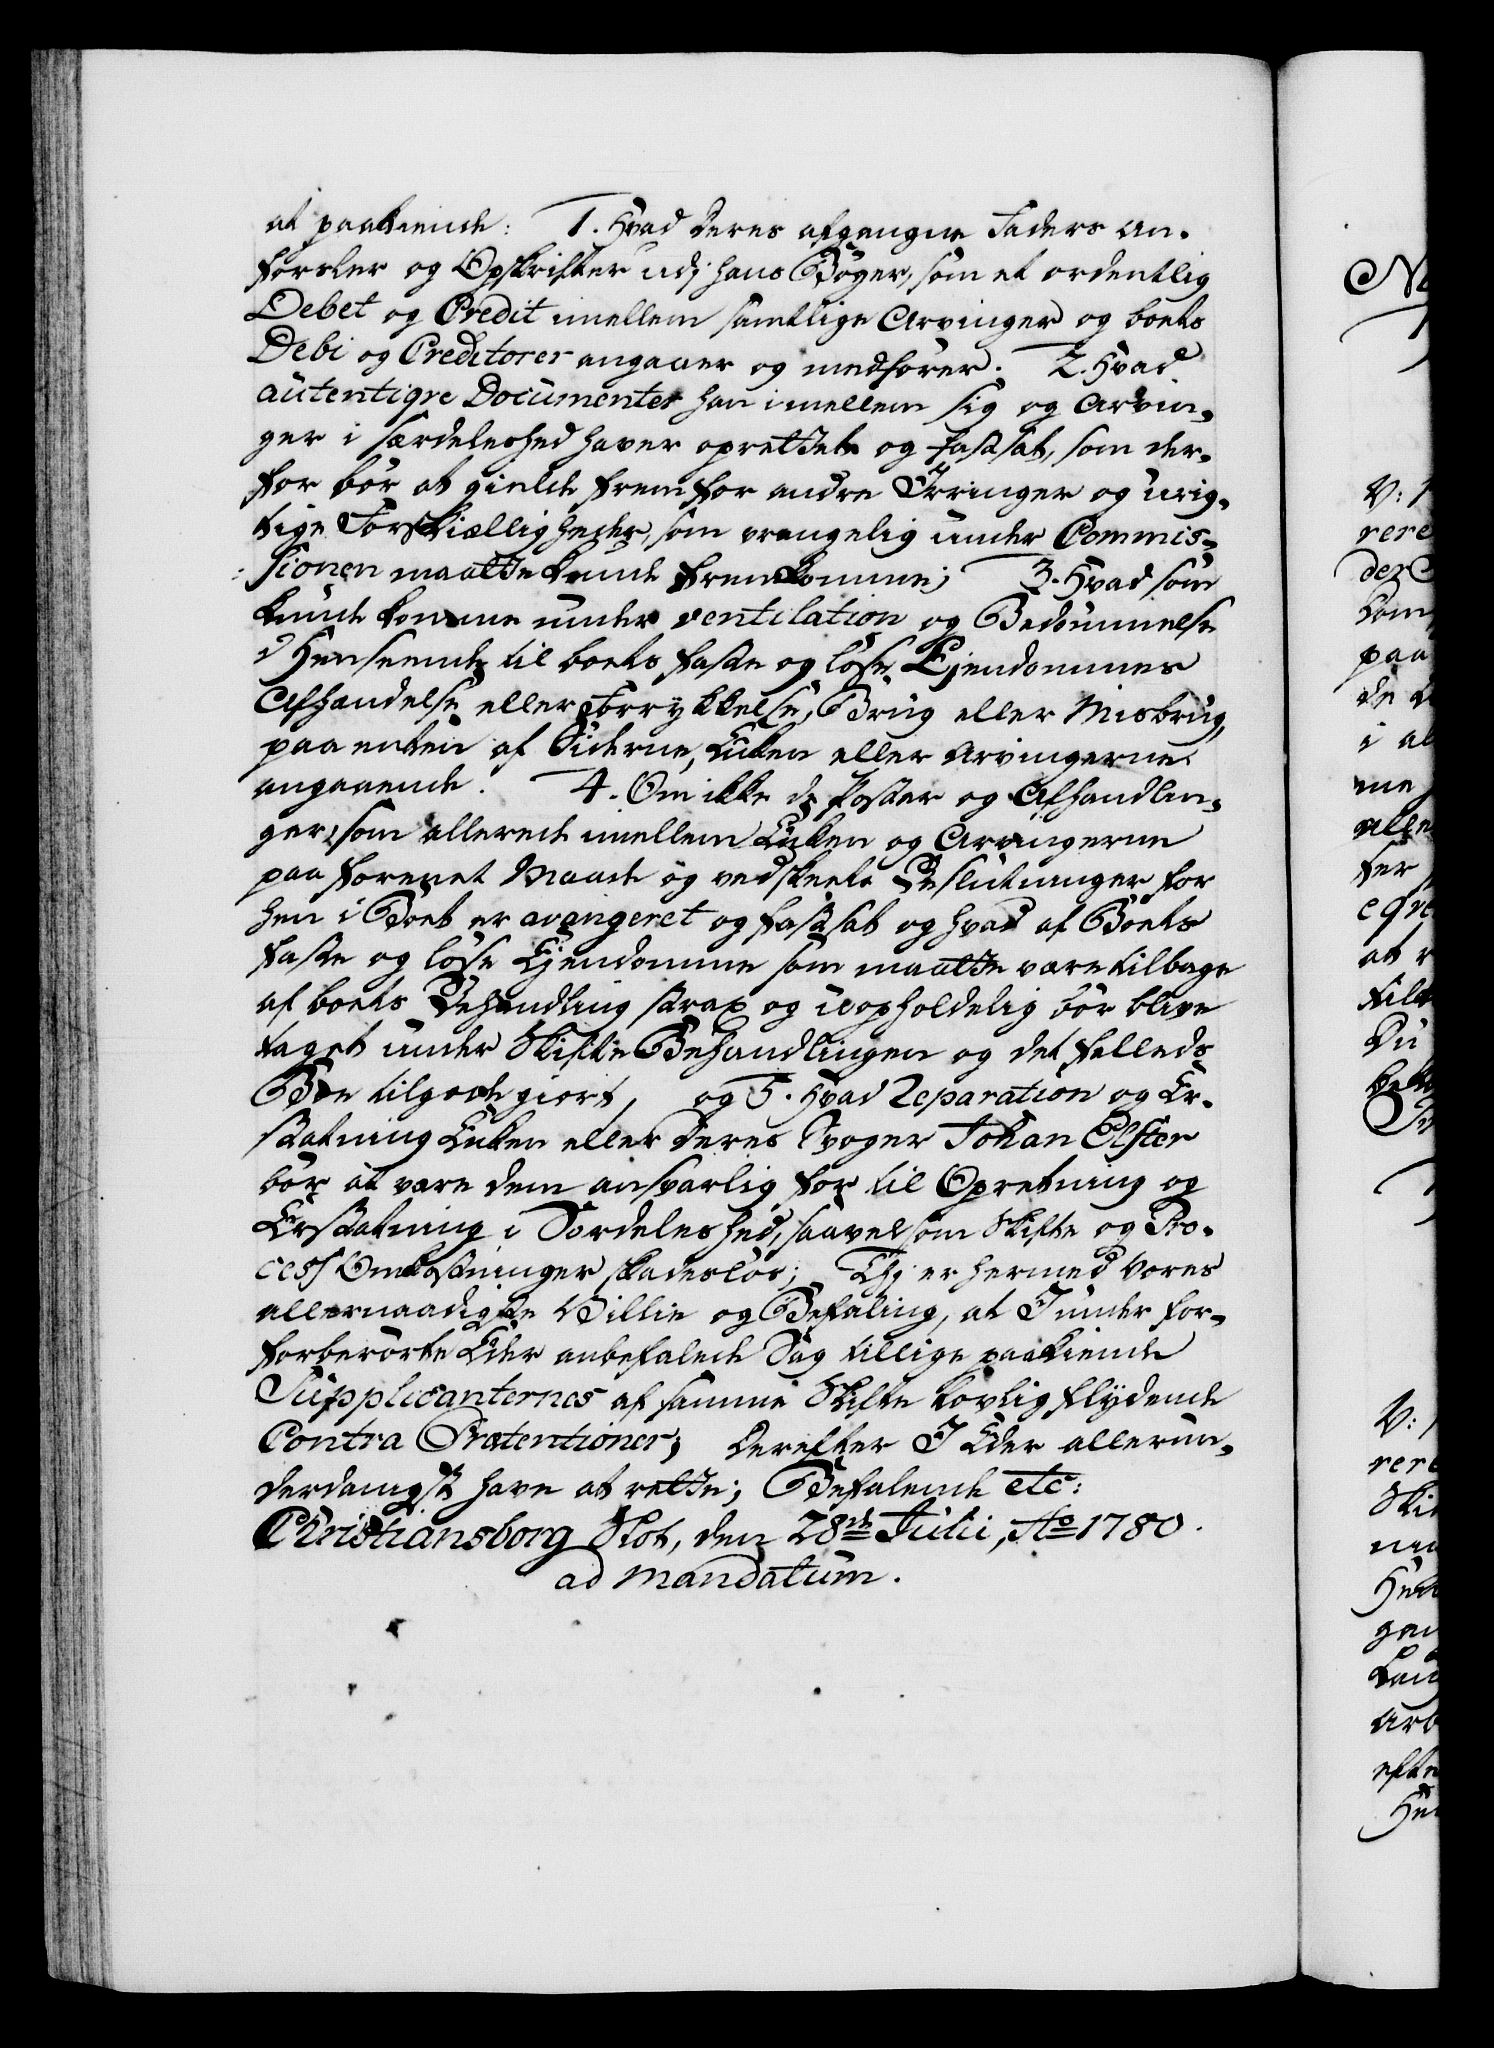 at paakiende: 1. Hvad deres afgangne Faders An-
førsler og Opskrifter udj hans Bøger, som et ordentlig
Debet og Credit imellem samtlige Arvinger og boets
Debi og Creditorer angaaer og medfører. 2. Hvad
autentiqve Documenter han imellem sig og Arvin-
ger i særdeleshed haver oprettet og fastsat, som der-
for bør at gielde frem for andre Erringer og urig-
tige Forskiælligheder, som vrangelig under Commis-
sionen maatte kunde fremkomme; 3. Hvad som
kunde komme under ventilation og Bedømmelse
i Henseende til boets faste og løse Ejendommes
Afhandelse eller forrykkelse, Brug eller Misbrug,
paa enten af Siderne, Enken eller Arvingerne
angaaende. 4. Om ikke de Poster og Afhandlin-
ger, som allerede imellem Enken og Arvingerne
paa forenet Maade og vedskeete Beslutninger for
hen i Boet er arangeret og fastsat og hvad af Boets
faste og løse Ejendomme som maatte være tilbage
af boets Behandling strax og uopholdelig bør blive
taget under Skifte Behandlingen og det felleds
Boe tilgode giort, og 5. Hvad Reparation og Er-
statning Enken eller deres Svoger Johan Elster
bør at være dem ansvarlig for til Opretning og
Erstatning i Særdeleshed, saavelsom Skifte og Pro-
cess Omkostninger skadesløs; Thj er hermed Vores
allernaadigste Villie og Befaling, at I under for-
forberørte Eder anbefalede Sag tillige paakiende
Supplicanternes af samme Skifte lovlig flydende
Contra Prætentioner; Derefter I Eder allerun-
derdanigst have at rette; Befalende etc:
Christiansborg Slot, den 28de Julii, Ao 1780.
ad mandatum.